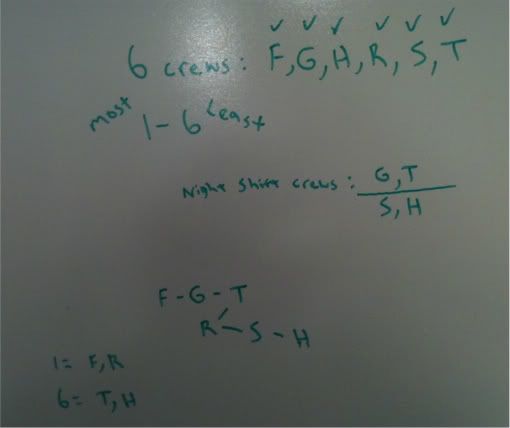 6 crews: F, G, H, R, S, T
most 1-6 least
Night Shift crews: G, T
S, H
F-G-T
R-S-H
1= F, R
6= T, H